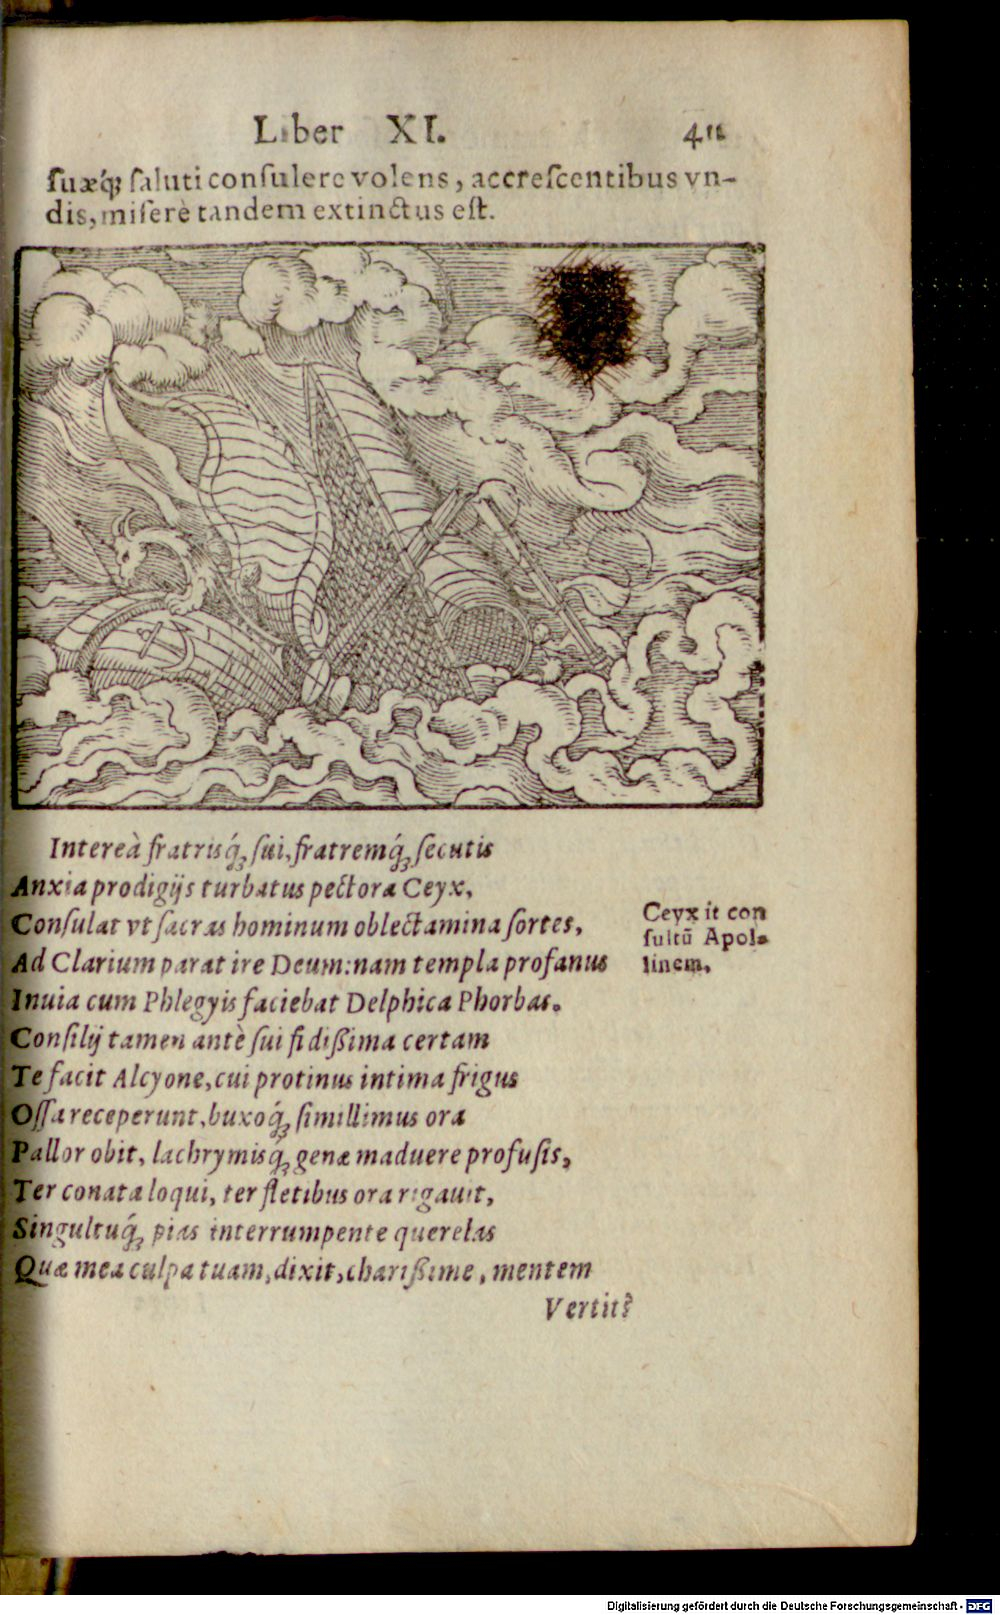 Liber XI. 411
ſuæq́; ſaluti conſulere volens, accreſcentibus vn-
dis, miſerè tandem extinctus eſt.
Intereà fratrisq́; ſui, fratremq́; ſecutis
Anxia prodigijs turbatus pectora Ceyx,
Conſulat vt ſacras hominum oblectamina ſortes,
Ad Clarium parat ire Deum: nam templa profanus
Inuia cum Phlegyis faciebat Delphica Phorbas.
Conſilij tamen antè ſui fidißima certam
Te facit Alcyone, cui protinus intima frigus
Oſſa receperunt, buxoq́; ſimillimus ora
Pallor obit, lachrymisq́; genæ maduere profuſis,
Ter conata loqui, ter fletibus ora rigauit,
Singultuq́; pias interrumpente querelas
Quæ mea culpa tuam, dixit, charißime, mentem
Vertit?
Ceyx it con
ſultū Apol-
linem.
Digitalisierung gefördert durch die Deutsche Forschungsgemeinschaft - DFG